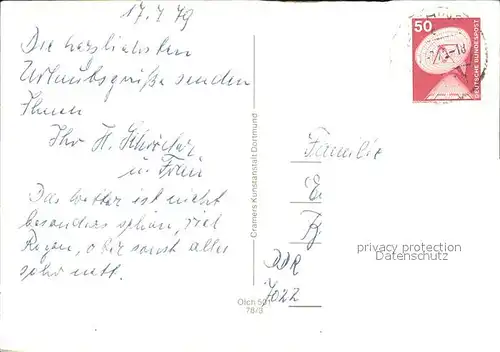 17.7.79
Die herzlichsten
Urlaubsgrüße senden
Ihnen
Ihr H. Schröder
u. Frau
Das Wetter ist nicht
besonders schön, viel
Regen, aber sonst alles
sehr nett.
Cramers Kunstanstalt Dortmund
Olch 50
78/3
50
DEUTSCHE BUNDESPOST
Familie
E
DDR
7022
privacy protection
Datenschutz